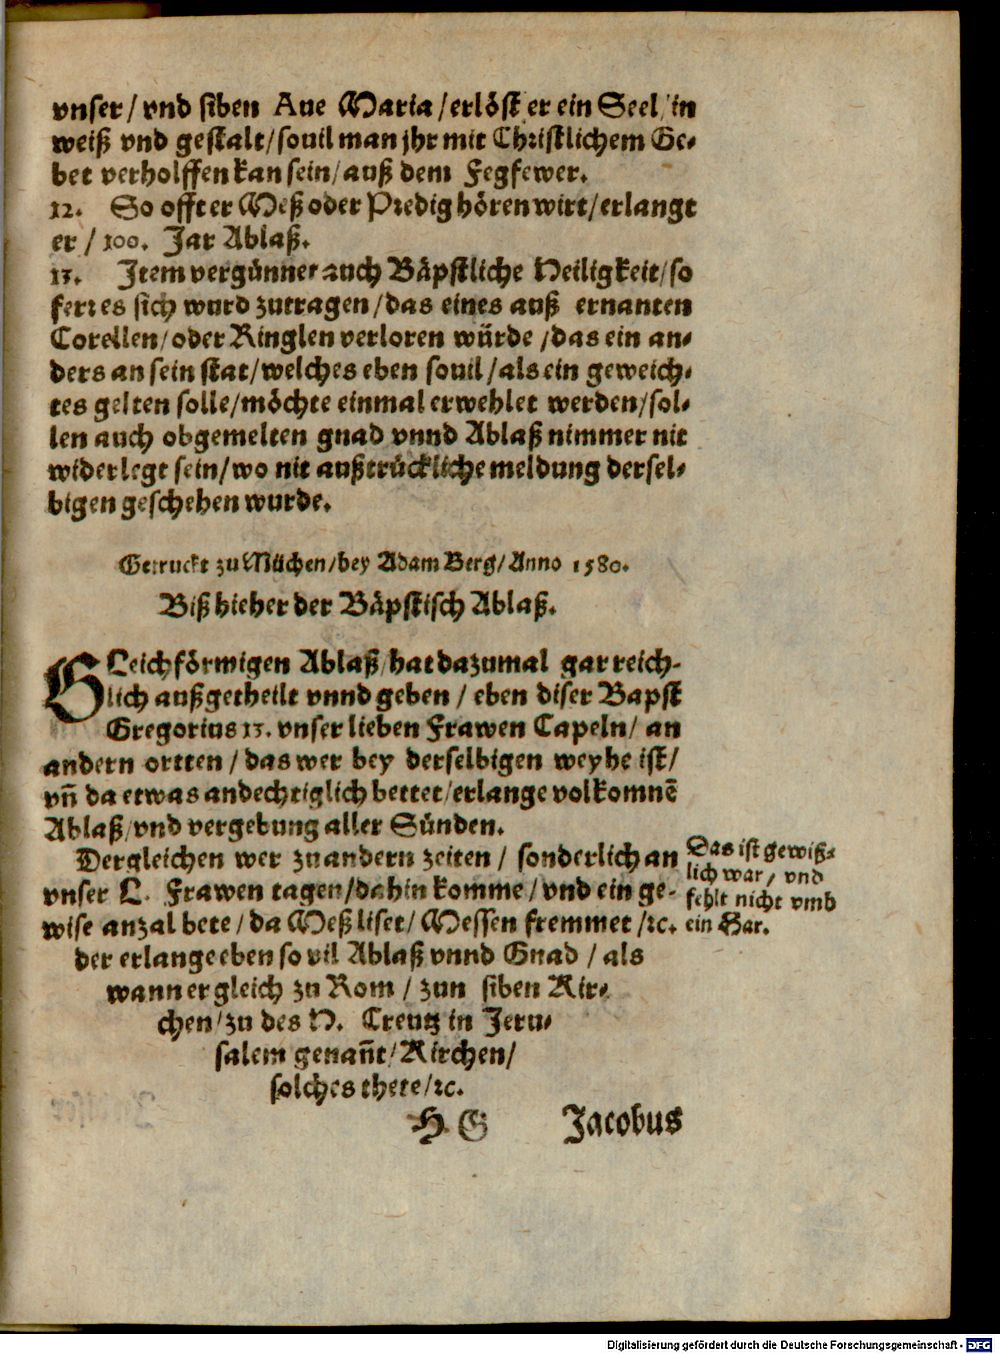 vnser / vnd siben Aue Maria / erlöst er ein Seel / in
weiß vnd gestalt / souil man jhr mit Christlichem Ge-
bet verholffen kan sein / auß dem Fegfewer.
12. So offt er Meß oder Predig hören wirt / erlangt
er / 100. Jar Ablaß.
13. Item vergünnet auch Bäpstliche Heiligkeit / so
fert es sich wurd zutragen / das eines auß ernanten
Corellen / oder Ringlen verloren würde / das ein an-
ders an sein stat / welches eben souil / als ein geweich-
tes gelten solle / möchte einmal erwehlet werden / sol-
len auch obgemelten gnad vnnd Ablaß nimmer nit
widerlegt sein / wo nit außtrückliche meldung dersel-
bigen geschehen wurde.
Getruckt zu Müchen / bey Adam Berg / Anno 1580.
Biß hieher der Bäpstisch Ablaß.
GLeichförmigen Ablaß / hat dazumal gar reich-
lich außgetheilt vnnd geben / eben diser Bapst
Gregorius 13. vnser lieben Frawen Capeln / an
andern ortten / das wer bey derselbigen weyhe ist /
vñ da etwas andechtiglich bettet / erlange volkomnē
Ablaß / vnd vergebung aller Sünden.
Dergleichen wer zu andern zeiten / sonderlich an
vnser L. Frawen tagen / dahin komme / vnd ein ge-
wise anzal bete / da Meß liset / Messen fremmet / ꝛc.
der erlange eben so vil Ablaß vnnd Gnad / als
wann er gleich zu Rom / zun siben Kir-
chen / zu des H. Creutz in Jeru-
salem genañt / Kirchen /
solches thete / ꝛc.
Das ist gewiß-
lich war / vnd
fehlt nicht vmb
ein Har.
H G Jacobus
Digitalisierung gefördert durch die Deutsche Forschungsgemeinschaft - DFG